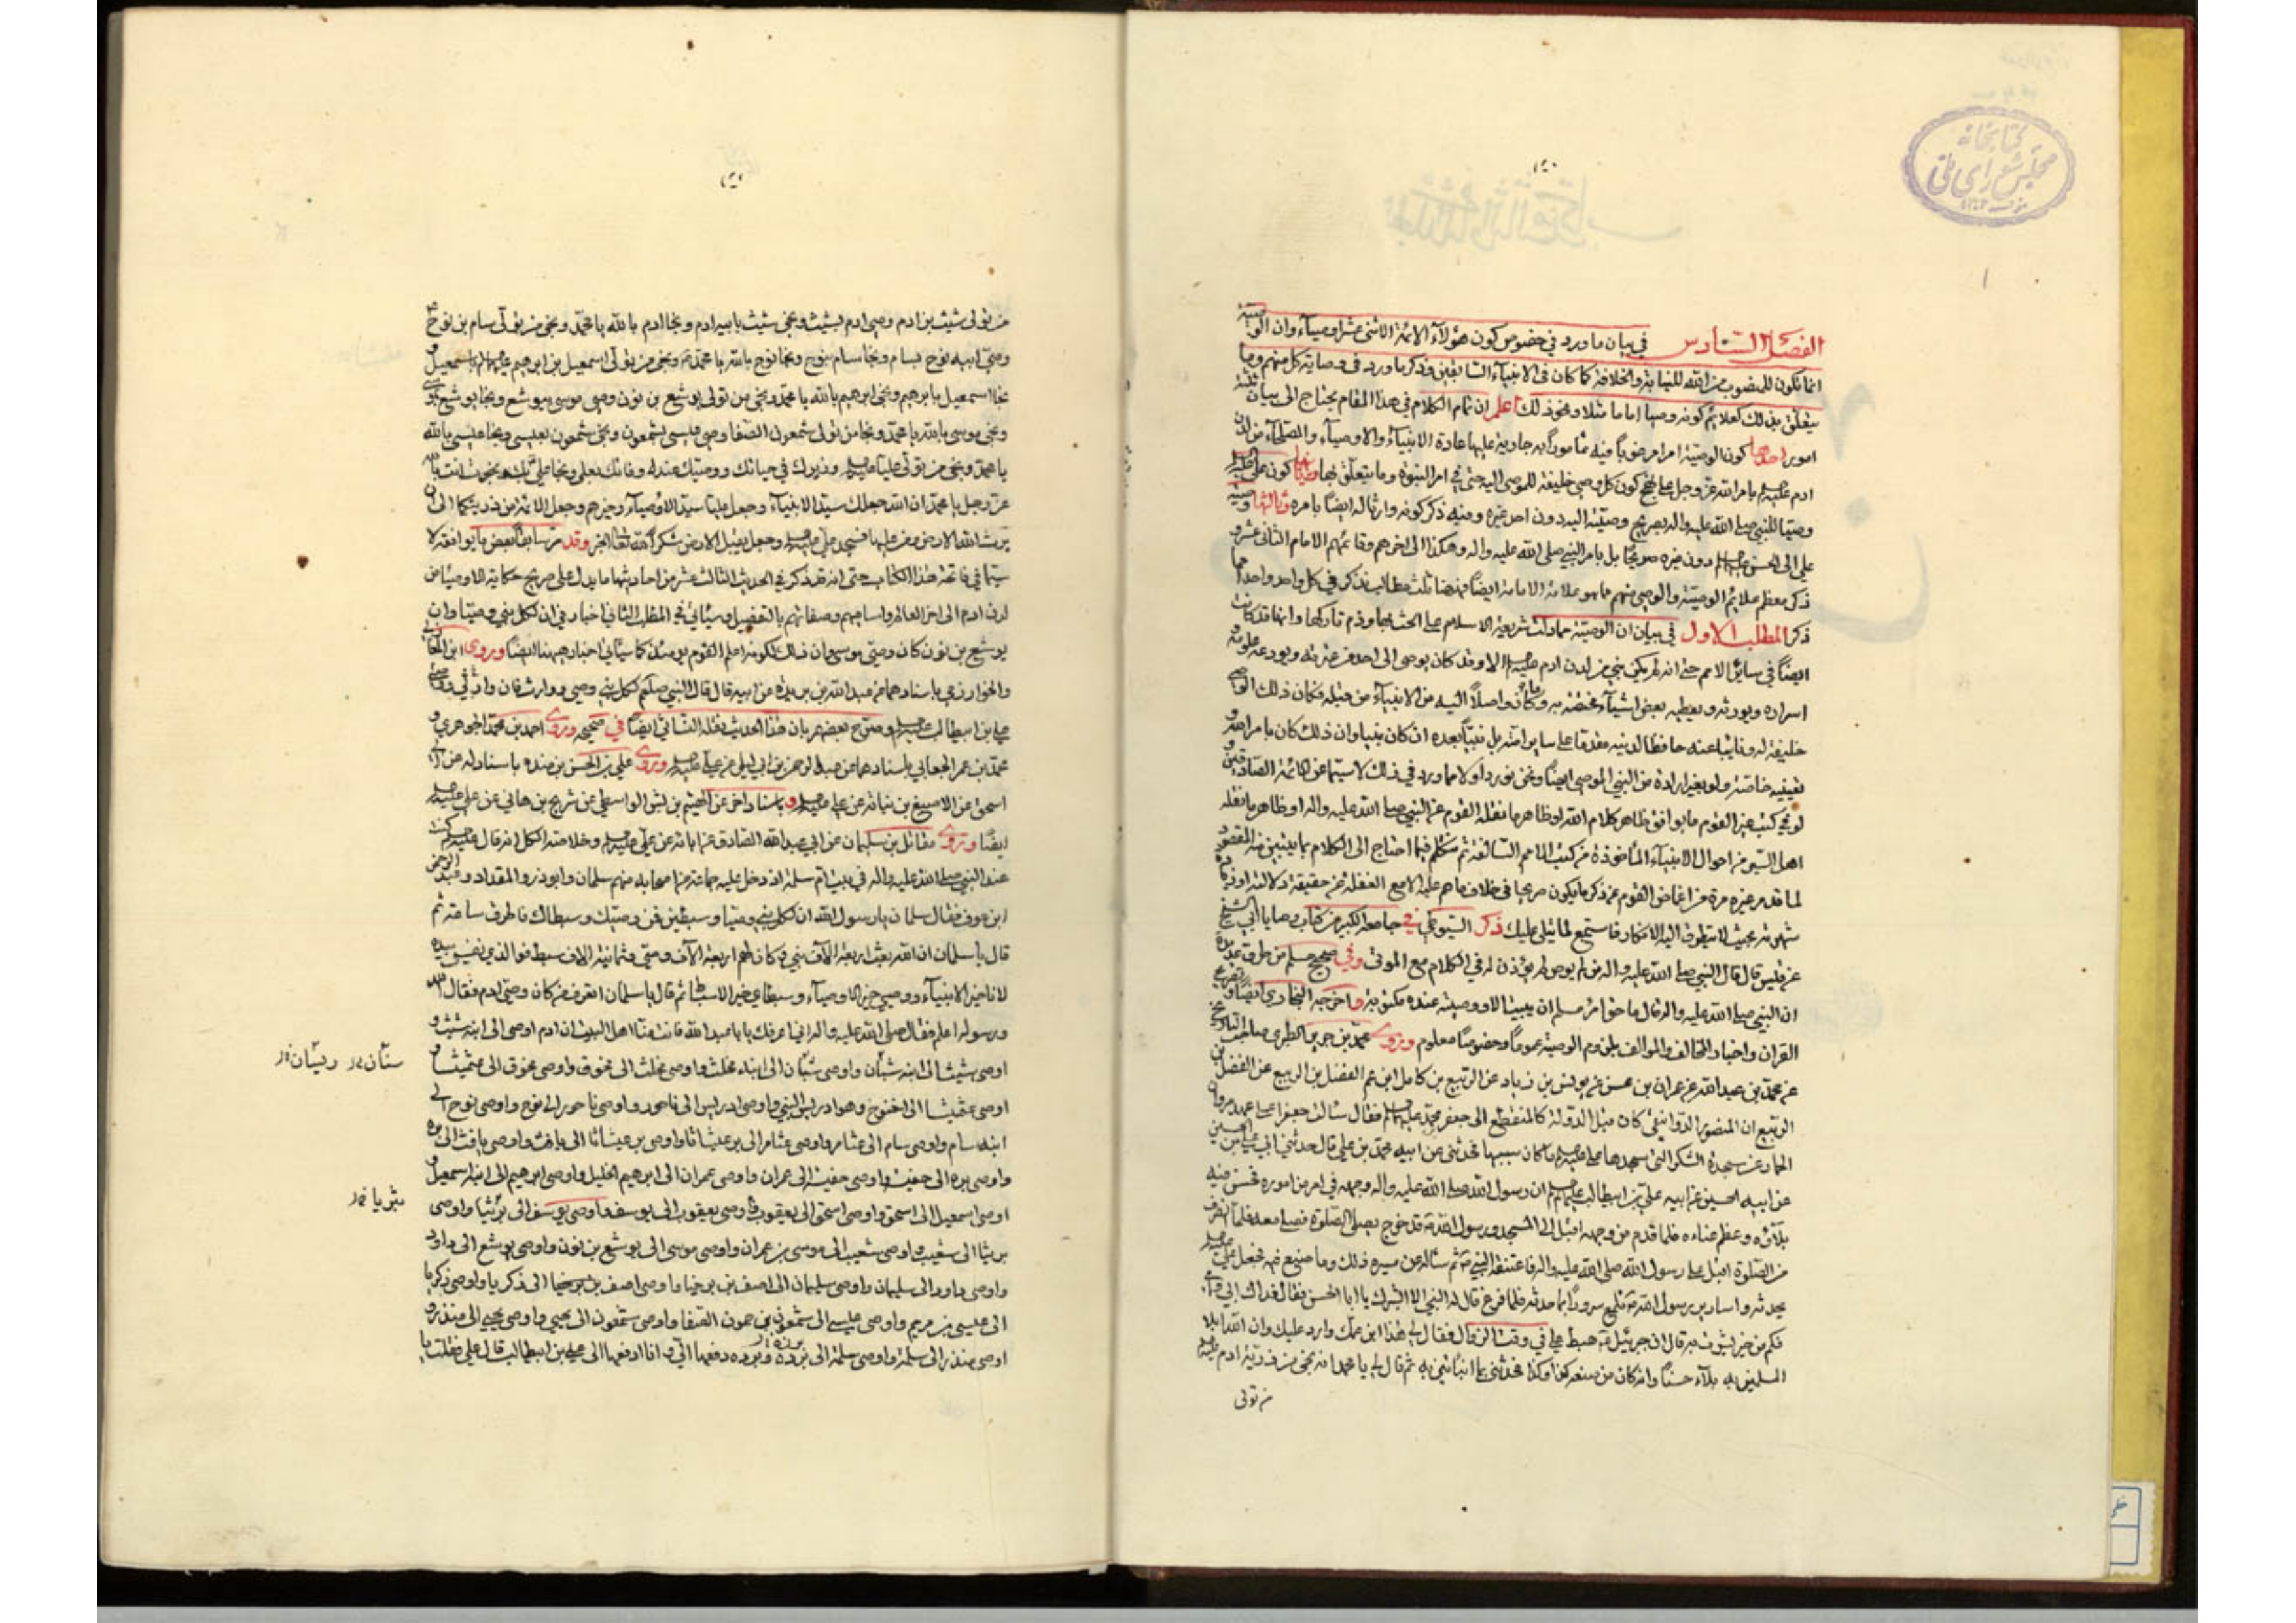 كتابخانه
مجلس شورای ملی
١
الفصل السادس في بيان ما ورد في خصوص كون هؤلاء الائمة الاثنى عشر اوصياء وان الوصية
انما تكون للمنصوب من الله للنيابة والخلافة كما كان في الانبياء السابقين وذكر ما ورد في وصاية كل منهم وما
يتعلق بذلك كعلائم كونه وصيا اماما مثلا ونحو ذلك اعلم ان تمام الكلام في هذا المقام يحتاج الى بيان ثلثة
امور احدها كون الوصية امرا مرغوبا فيه مامورا به جارية عليها عادة الانبياء والاوصياء والصلحاء من لدن
ادم عليه السلم بامر الله عز وجل على نهج كون كل وصي خليفة للموصى اليه حتى في امر النبوة وما يتعلق بها وثانيها كون علي عليه السلم
وصيا للنبي صلى الله عليه واله بصريح وصيته اليه دون احد غيره وفيه ذكر كونه وارثا له ايضا بامره وثالثها وصية
علي الى الحسن عليهما السلم دون غيره صريحا بل بامر النبي صلى الله عليه واله وهكذا الى اخرهم وقائمهم الامام الثاني عشر و
ذكر معظم علائم الوصية والوصي منهم مما هو علامة الامامة ايضا فهنا ثلث مطالب نذكر في كل واحد واحدا مما
ذكر المطلب الاول في بيان ان الوصية مما دلت شريعة الاسلام على الحث بها وذم تاركها وانها قد كانت
ايضا في سائر الامم حتى انه لم يكن نبي من لدن ادم عليه السلم الا وقد كان يوصي الى احد من عترته ويودعه علومه و
اسراره ويورثه ويعطيه بعض اشياء مختصة به وكان واصلا اليه من الانبياء من قبله فكان ذلك الوصي
خليفة له ونائبا عنه حافظا لدينه مقدما على سائر امته بل نبيا بعده ان كان نبيا وان ذلك كان بامر الله و
تعيينه خاصة ولو بغير ارادة من النبي الموصي ايضا ونحن نورد اولا مما ورد في ذلك لا سيما عن الائمة الصادقين
لو في كتب غير القوم ما يوافق ظاهر كلام الله او ظاهر ما نقله القوم عن النبي صلى الله عليه واله او ظاهر ما نقله
اهل السير من احوال الانبياء المأخوذة من كتب الامم السالفة ثم نتكلم فيما احتاج الى الكلام بما يتبين منه المقصود
لما قد مر غير مرة من اغماض القوم عن ذكر ما يكون صريحا في خلاف ما هم عليه الا مع الغفلة عن حقيقة دلالته او
شهرته بحيث لا يتطرق اليه الانكار فاستمع لما يتلى عليك ذكر السيوطي في جامعه الكبير من كتاب وصايا ابي الشيخ
عن قيس قال قال النبي صلى الله عليه واله من لم يوص لم يؤذن له في الكلام مع الموتى وفي صحيح مسلم من طرق عديدة
ان النبي صلى الله عليه واله قال ما حق امرئ مسلم ان يبيت الا ووصيته عنده مكتوبة واخرجه البخاري ايضا
القران واخبار المخالف والموالف بلزوم الوصية عموما وخصوصا معلوم وروى محمد بن جرير الطبري صاحب التاريخ
عن محمد بن عبد الله عن عمران بن محسن عن يونس بن زياد عن الربيع بن كامل ابن عم الفضل بن الربيع عن الفضل بن
الربيع ان المنصور الدوانيقي كان قبل الدولة كالمنقطع الى جعفر بن محمد عليهما السلم فقال سالت جعفرا على عهد مروان
الحمار عن سجدة الشكر التي سجدها علي عليه السلم ما كان سببها فحدثني عن ابيه محمد بن علي قال حدثني ابي علي بن الحسين
عن ابيه الحسين عن ابيه علي بن ابيطالب عليهم السلم ان رسول الله صلى الله عليه واله وجهه في امر من اموره فحسن فيه
بلاؤه وعظم عناءه فلما قدم من وجهه اقبل الى المسجد ورسول الله ص قد خرج يصلي الصلوة فصلى معه فلما انصرف
من الصلوة اقبل على رسول الله صلى الله عليه واله فاعتنقه النبي ص ثم سأله عن مسيره ذلك وما صنع فيه فجعل علي عليه السلم
يحدثه واسارير رسول الله ص تلمع سرورا بما حدثه فلما فرغ قال له النبي الا ابشرك يا ابا الحسن فقال فداك ابي وامي
فكم من خير بشرت به قال ان جبرئيل ع هبط علي في وقت الزوال فقال لي هذا ابن عمك وارد عليك وان الله ابلى
المسلمين به بلاء حسنا وانه كان من صنعه كذا وكذا فحدثني بما انبأتني به ثم قال لي يا محمد انه نجى من ذرية ادم عليه السلم
من تولى
من تولى شيث بن ادم وصي ادم بشيث ونجى شيث بابيه ادم ونجا ادم بالله يا محمد ونجى من تولى سام بن نوح
وصي ابيه نوح بسام ونجا سام بنوح ونجا نوح بالله يا محمد ونجى من تولى اسمعيل بن ابرهيم عليهما السلم باسمعيل و
نجا اسمعيل بابرهيم ونجى ابرهيم بالله يا محمد ونجى من تولى يوشع بن نون وصي موسى بيوشع ونجا يوشع بموسى
ونجى موسى بالله يا محمد ونجا من تولى شمعون الصفا وصي عيسى بشمعون ونجى شمعون بعيسى ونجا عيسى بالله
يا محمد ونجى من تولى عليا عليه السلم وزيرك في حياتك ووصيك عند وفاتك بعلي ونجا علي بك ونجوت انت بالله
عز وجل يا محمد ان الله جعلك سيد الانبياء وجعل عليا سيد الاوصياء وخيرهم وجعل الائمة من ذريتكما الى ان
يرث الله الارض ومن عليها فسجد علي عليه السلم وجعل يقبل الارض شكرا لله تعالى الخبر وقد مر سابقا بعض ما يوافقه لا
سيما في فاتحة هذا الكتاب حتى انه قد ذكر في الحديث الثالث عشر من احاديثها ما يدل على صريح حكاية الاوصياء من
لدن ادم الى اخر العالم واساميهم وصفاتهم بالتفصيل وسيأتي في المطلب الثاني اخبار في ان لكل نبي وصيا وان
يوشع بن نون كان وصي موسى وان ذلك لكونه اعلم القوم يومئذ كما سيأتي اخبار هيهنا ايضا وروى ابن المغازلي
والخوارزمي باسنادهما عن عبد الله بن بريدة عن ابيه قال قال النبي صلعم لكل نبي وصي ووارث فان وارثي ووصيي
علي بن ابيطالب عليه السلم وصرح بعضهم بان هذا الحديث نقله النسائي ايضا في صحيحه وروى احمد بن محمد الجوهري و
محمد بن عمر الجعابي باسنادهما عن عبد الرحمن بن ابي ليلى عن علي عليه السلم وروى علي بن الحسن بن منده باسناد له عن ابي
اسحق عن الاصبغ بن نباتة عن علي عليه السلم وباسناد اخر عن الهيثم بن بشر الواسطي عن شريح بن هاني عن علي عليه السلم
ايضا وروى مقاتل بن سليمان عن ابي عبد الله الصادق عن ابائه عن علي عليه السلم وخلاصة الكل انه قال عليه السلم كنت
عند النبي صلى الله عليه واله في بيت ام سلمة اذ دخل عليه جماعة من اصحابه منهم سلمان وابو ذر والمقداد وعبد الرحمن
ابن عوف فقال سلمان يا رسول الله ان لكل نبي وصيا وسبطين فمن وصيك وسبطاك فاطرق ساعة ثم
قال يا سلمان ان الله بعث اربعة الاف نبي وكان لهم اربعة الاف وصي وثمانية الاف سبط فوالذي نفسي بيده
لانا خير الانبياء ووصيي خير الاوصياء وسبطاي خير الاسباط ثم قال يا سلمان اتعرف من كان وصي ادم فقال الله
ورسوله اعلم فقال صلى الله عليه واله اني اعرفك يا ابا عبد الله فانت منا اهل البيت ان ادم اوصى الى ابنه شيث و
اوصى شيث الى ابنه شبان واوصى شبان الى ابنه مخلث واوصى مخلث الى محوق واوصى محوق الى عثميثا و
اوصى عثميثا الى اخنوخ وهو ادريس النبي واوصى ادريس الى ناحور واوصى ناحور الى نوح واوصى نوح الى
ابنه سام واوصى سام الى عثامر واوصى عثامر الى برعيثاثا واوصى برعيثاثا الى يافث واوصى يافث الى بره
واوصى بره الى حفيثه واوصى حفيثه الى عمران واوصى عمران الى ابرهيم الخليل واوصى ابرهيم الى ابنه اسمعيل و
اوصى اسمعيل الى اسحق واوصى اسحق الى يعقوب واوصى يعقوب الى يوسف واوصى يوسف الى بريثا واوصى
بريثا الى شعيب واوصى شعيب الى موسى بن عمران واوصى موسى الى يوشع بن نون واوصى يوشع الى داود
واوصى داود الى سليمان واوصى سليمان الى اصف بن برخيا واوصى اصف بن برخيا الى ذكريا واوصى ذكريا
الى عيسى بن مريم واوصى عيسى الى شمعون بن حمون الصفا واوصى شمعون الى يحيى واوصى يحيى الى منذر و
اوصى منذر الى سلمة واوصى سلمة الى برده وبرده دفعها الي وانا ادفعها الى علي بن ابيطالب قال علي فقلت يا